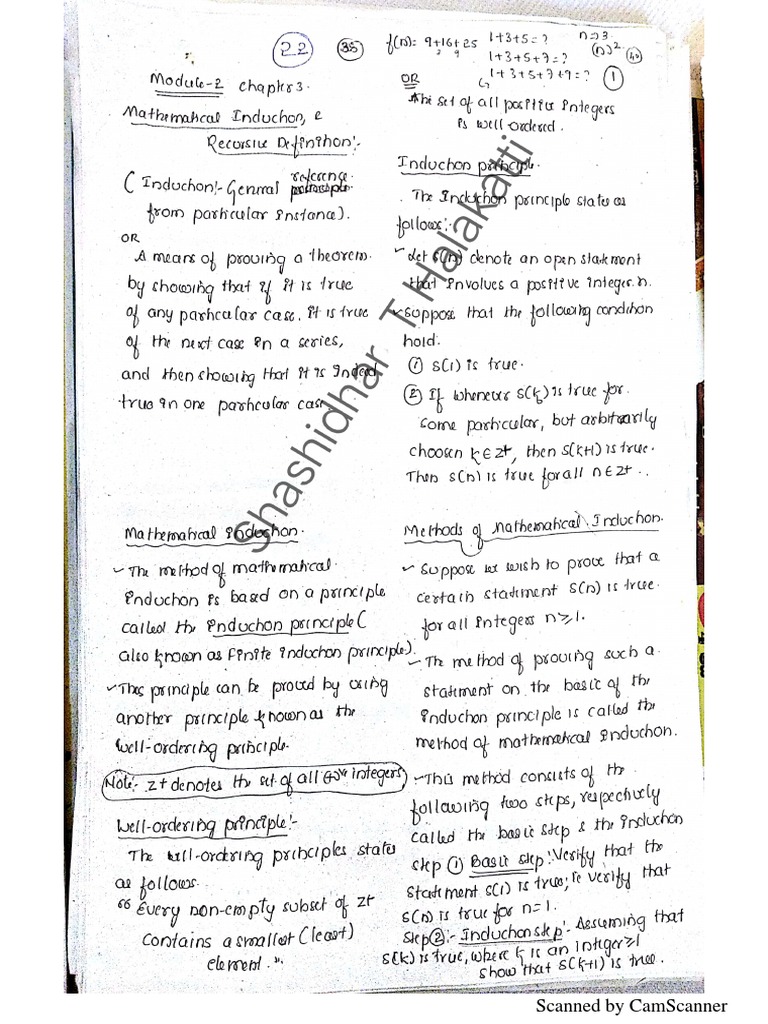 22
35
f(n) = 9+16+25
1+3+5=?
n=3
(n)²
1+3+5+7=?
1+3+5+7+9=?
1
Module-2 chapter 3.
Mathematical Induction, &
Recursive Definition:-
(Induction:- General reference
from particular instance).
OR
A means of proving a theorem
by showing that if it is true
of any particular case, it is true
of the next case in a series,
and then showing that it is indeed
true in one particular case.
Mathematical Induction.
The method of mathematical
induction is based on a principle
called the induction principle (
also known as finite induction principle).
This principle can be proved by using
another principle known as the
well-ordering principle.
Note:- Z+ denotes the set of all +ve integers
Well-ordering principle:-
The well-ordring principles states
as follows.
"Every non-empty subset of Z+
contains a smallest (least)
element."
OR
The set of all positive integers
is well ordered.
Induction principle.
The Induction principle states as
follows:-
Let S(n) denote an open statement
that involves a positive integer n.
Suppose that the following condition
hold.
① S(1) is true.
② If whenever S(k) is true for
some particular, but arbitrarily
choosen k∈Z+, then S(k+1) is true.
Then S(n) is true for all n∈Z+.
Methods of Mathematical Induction.
Suppose we wish to prove that a
certain statement S(n) is true
for all integers n≥1.
The method of proving such a
statement on the basic of the
induction principle is called the
method of mathematical induction.
This method consists of the
following two steps, respectively
called the basic step & the induction
step ① Basic step: Verify that the
statement S(1) is true; ie verify that
S(n) is true for n=1.
Step②:- Induction step:- Assuming that
S(k) is true, where k is an integer≥1
show that S(k+1) is true.
Shashidhar T Halakatti
Scanned by CamScanner